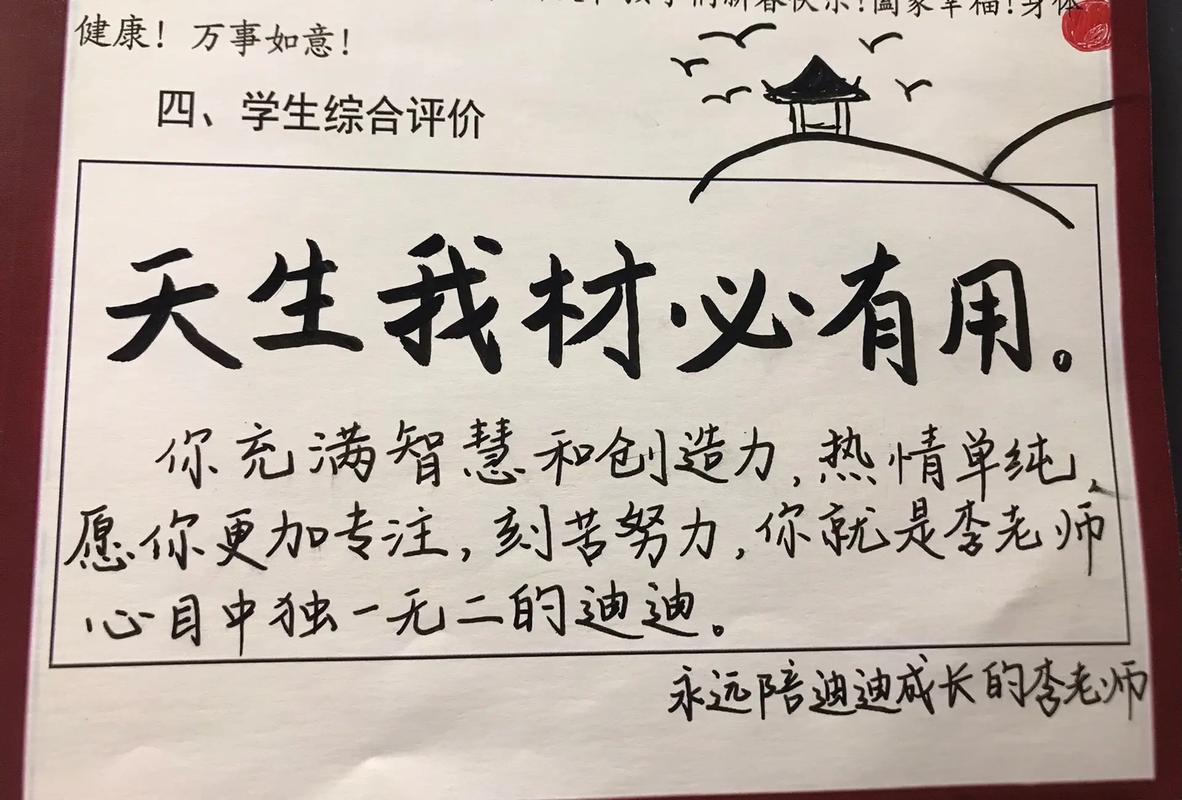 孩子们新春快乐！阖家幸福！身体
健康！万事如意！
四、学生综合评价
天生我材必有用。
你充满智慧和创造力，热情单纯、
愿你更加专注，刻苦努力，你就是李老师
心目中独一无二的迪迪。
永远陪迪迪成长的李老师